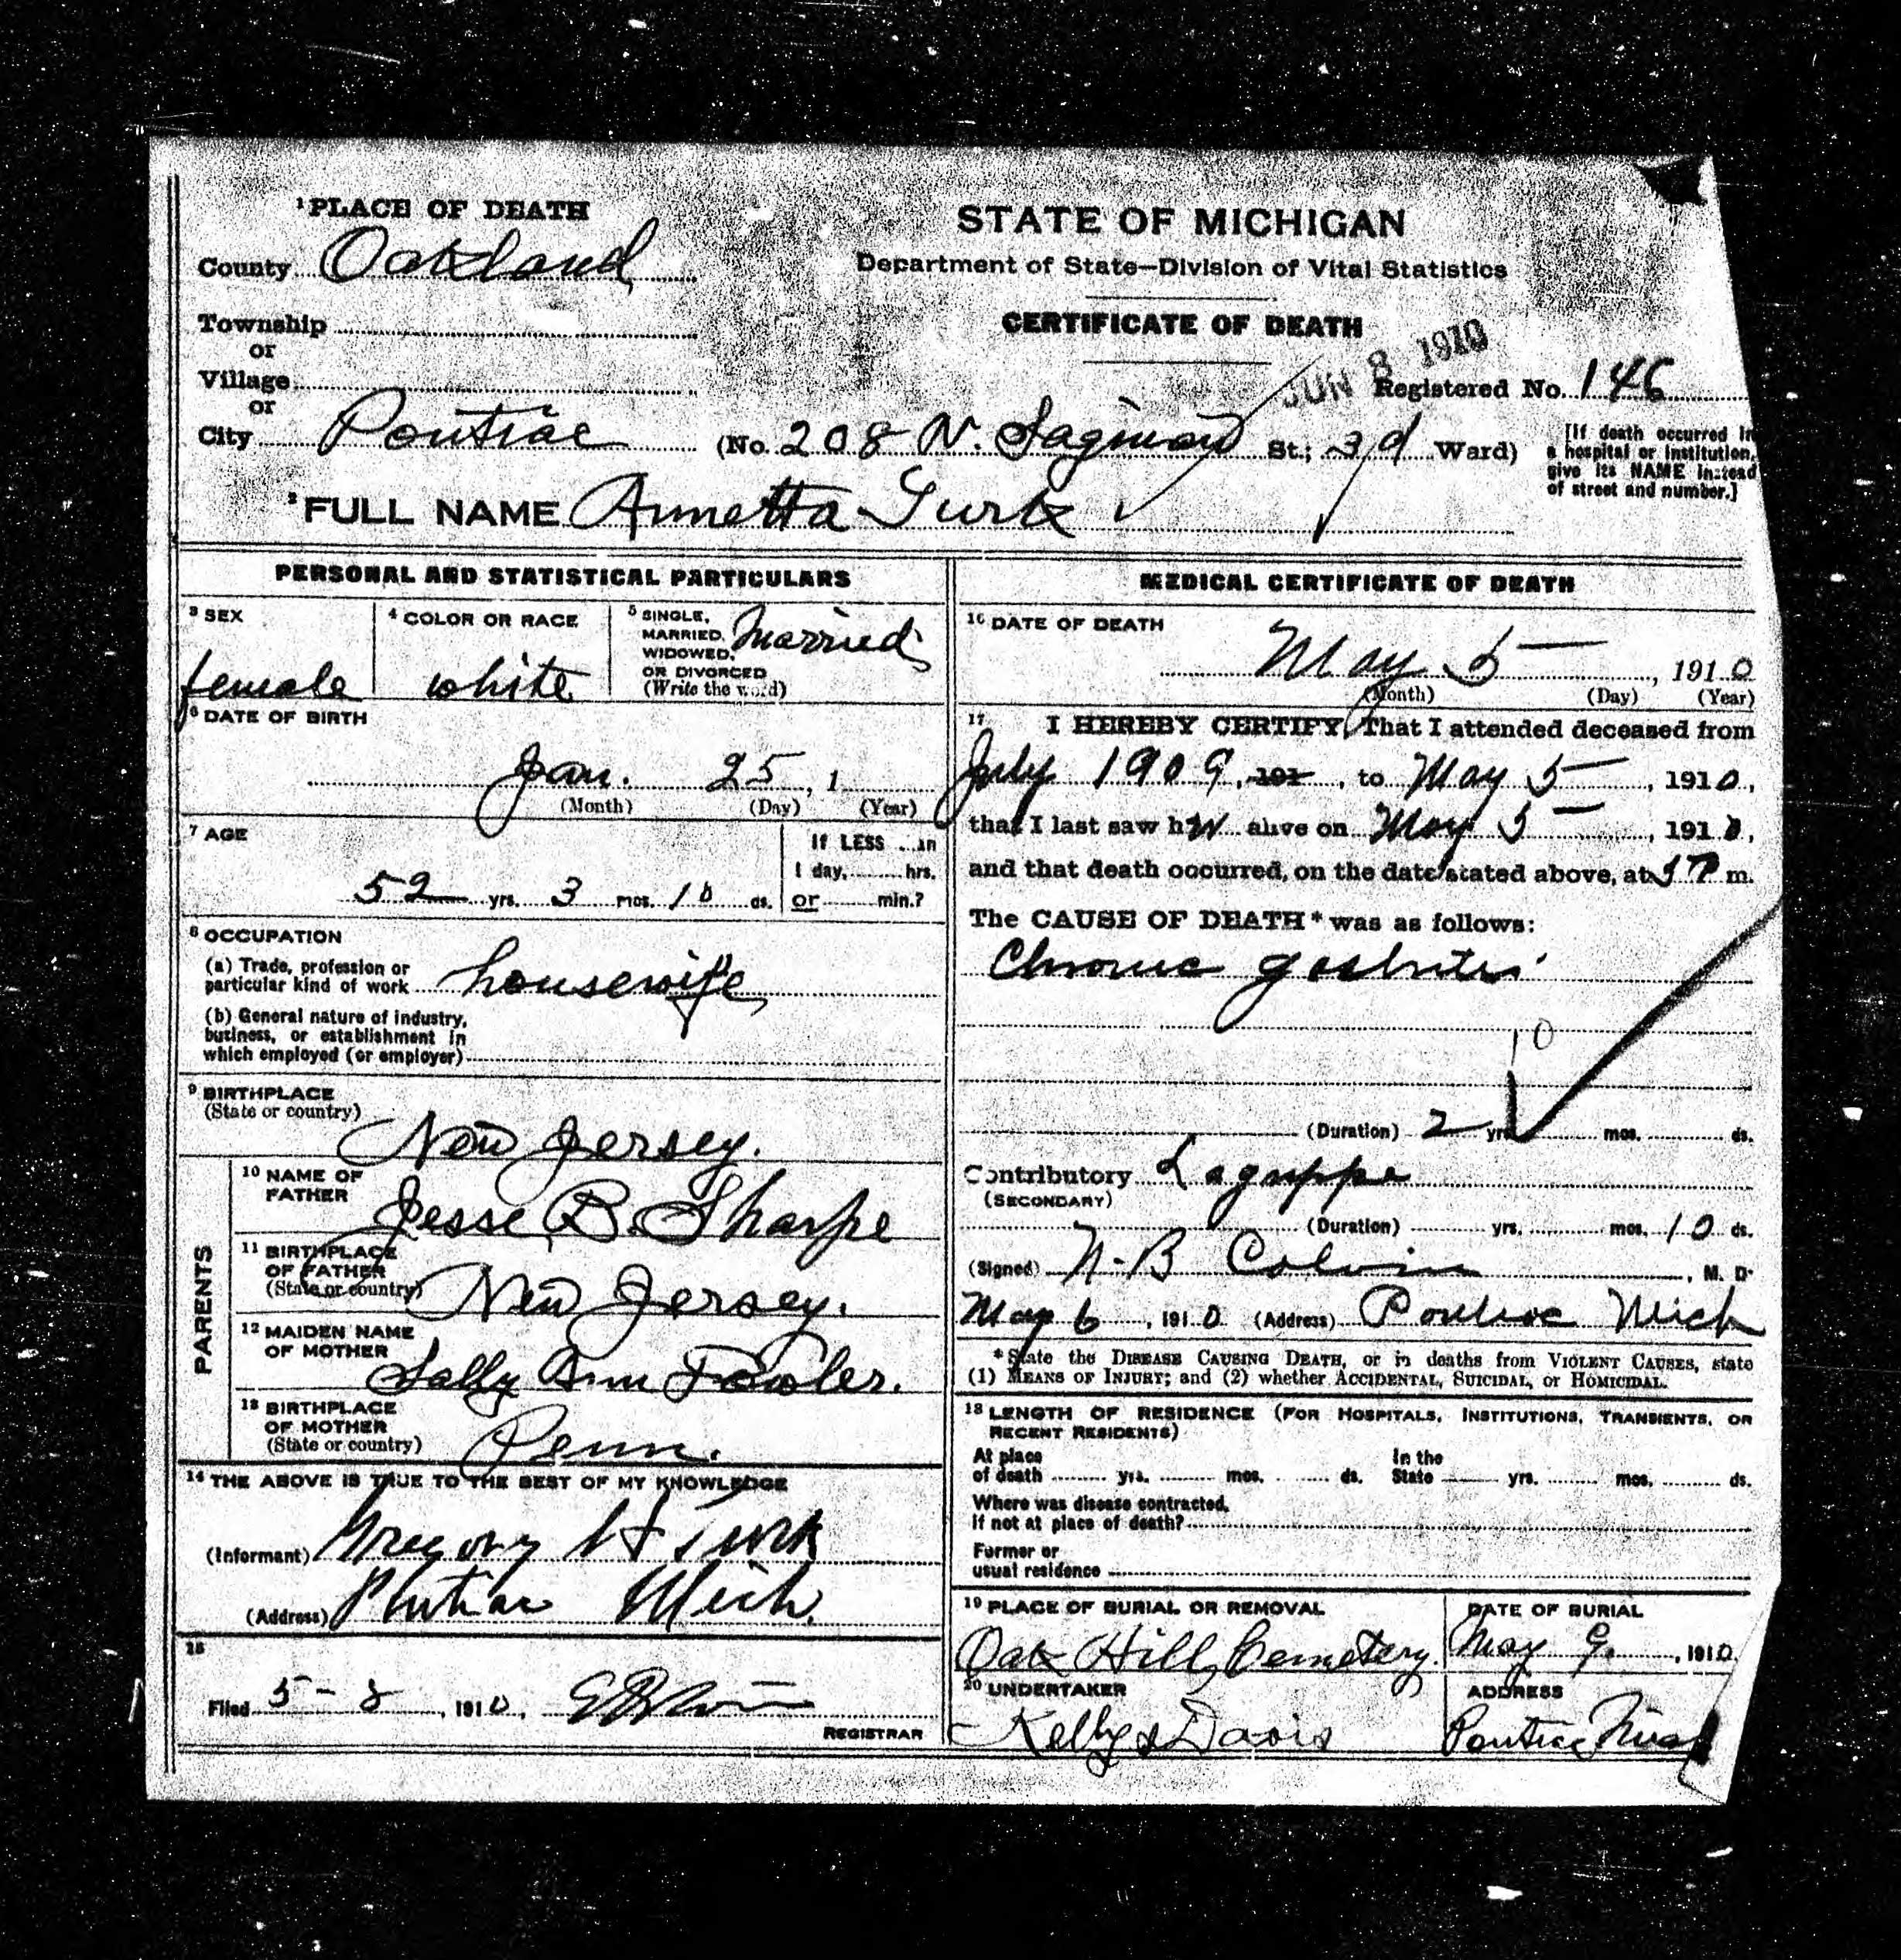 ¹PLACE OF DEATH
County Oakland
Township
or
Village
or
City Pontiac (No. 208 N. Saginaw St.; 3d Ward)
STATE OF MICHIGAN
Department of State—Division of Vital Statistics
CERTIFICATE OF DEATH
JUN 8 1910
Registered No. 146
[If death occurred in
a hospital or institution,
give its NAME instead
of street and number.]
²FULL NAME Annetta Turk
PERSONAL AND STATISTICAL PARTICULARS
³ SEX
female
⁴ COLOR OR RACE
white
⁵ SINGLE,
MARRIED,
WIDOWED,
OR DIVORCED
(Write the word)
Married
⁶ DATE OF BIRTH
Jan. 25, 1
(Month) (Day) (Year)
⁷ AGE
52 yrs. 3 mos. 10 ds.
If LESS than
1 day, hrs.
or min.?
⁸ OCCUPATION
(a) Trade, profession or
particular kind of work housewife
(b) General nature of industry,
business, or establishment in
which employed (or employer)
⁹ BIRTHPLACE
(State or country)
New Jersey.
PARENTS
¹⁰ NAME OF
FATHER
Jesse B. Sharpe
¹¹ BIRTHPLACE
OF FATHER
(State or country)
New Jersey.
¹² MAIDEN NAME
OF MOTHER
Sally Ann Fowler.
¹³ BIRTHPLACE
OF MOTHER
(State or country)
Penn.
¹⁴ THE ABOVE IS TRUE TO THE BEST OF MY KNOWLEDGE
(Informant) Gregory H Turk
(Address) Pontiac Mich.
15
Filed 5-8, 1910,
REGISTRAR
MEDICAL CERTIFICATE OF DEATH
¹⁶ DATE OF DEATH
May 5, 1910
(Month) (Day) (Year)
¹⁷ I HEREBY CERTIFY, That I attended deceased from
July 1909, 191 , to May 5, 1910,
that I last saw her alive on May 5, 1910,
and that death occurred, on the date stated above, at 5 P m.
The CAUSE OF DEATH* was as follows:
Chronic gastritis
10
(Duration) 2 yrs. mos. ds.
Contributory Lagrippe
(SECONDARY)
(Duration) yrs. mos. 10 ds.
(Signed) N. B Colvin, M. D.
May 6, 1910 (Address) Pontiac Mich
*State the DISEASE CAUSING DEATH, or in deaths from VIOLENT CAUSES, state
(1) MEANS OF INJURY; and (2) whether ACCIDENTAL, SUICIDAL, or HOMICIDAL.
¹⁸ LENGTH OF RESIDENCE (FOR HOSPITALS, INSTITUTIONS, TRANSIENTS, OR
RECENT RESIDENTS)
At place
of death yrs. mos. ds.
In the
State yrs. mos. ds.
Where was disease contracted,
If not at place of death?
Former or
usual residence
¹⁹ PLACE OF BURIAL OR REMOVAL
Oak Hill Cemetery.
DATE OF BURIAL
May 9, 1910
²⁰ UNDERTAKER
Kelly & Davis
ADDRESS
Pontiac Mich